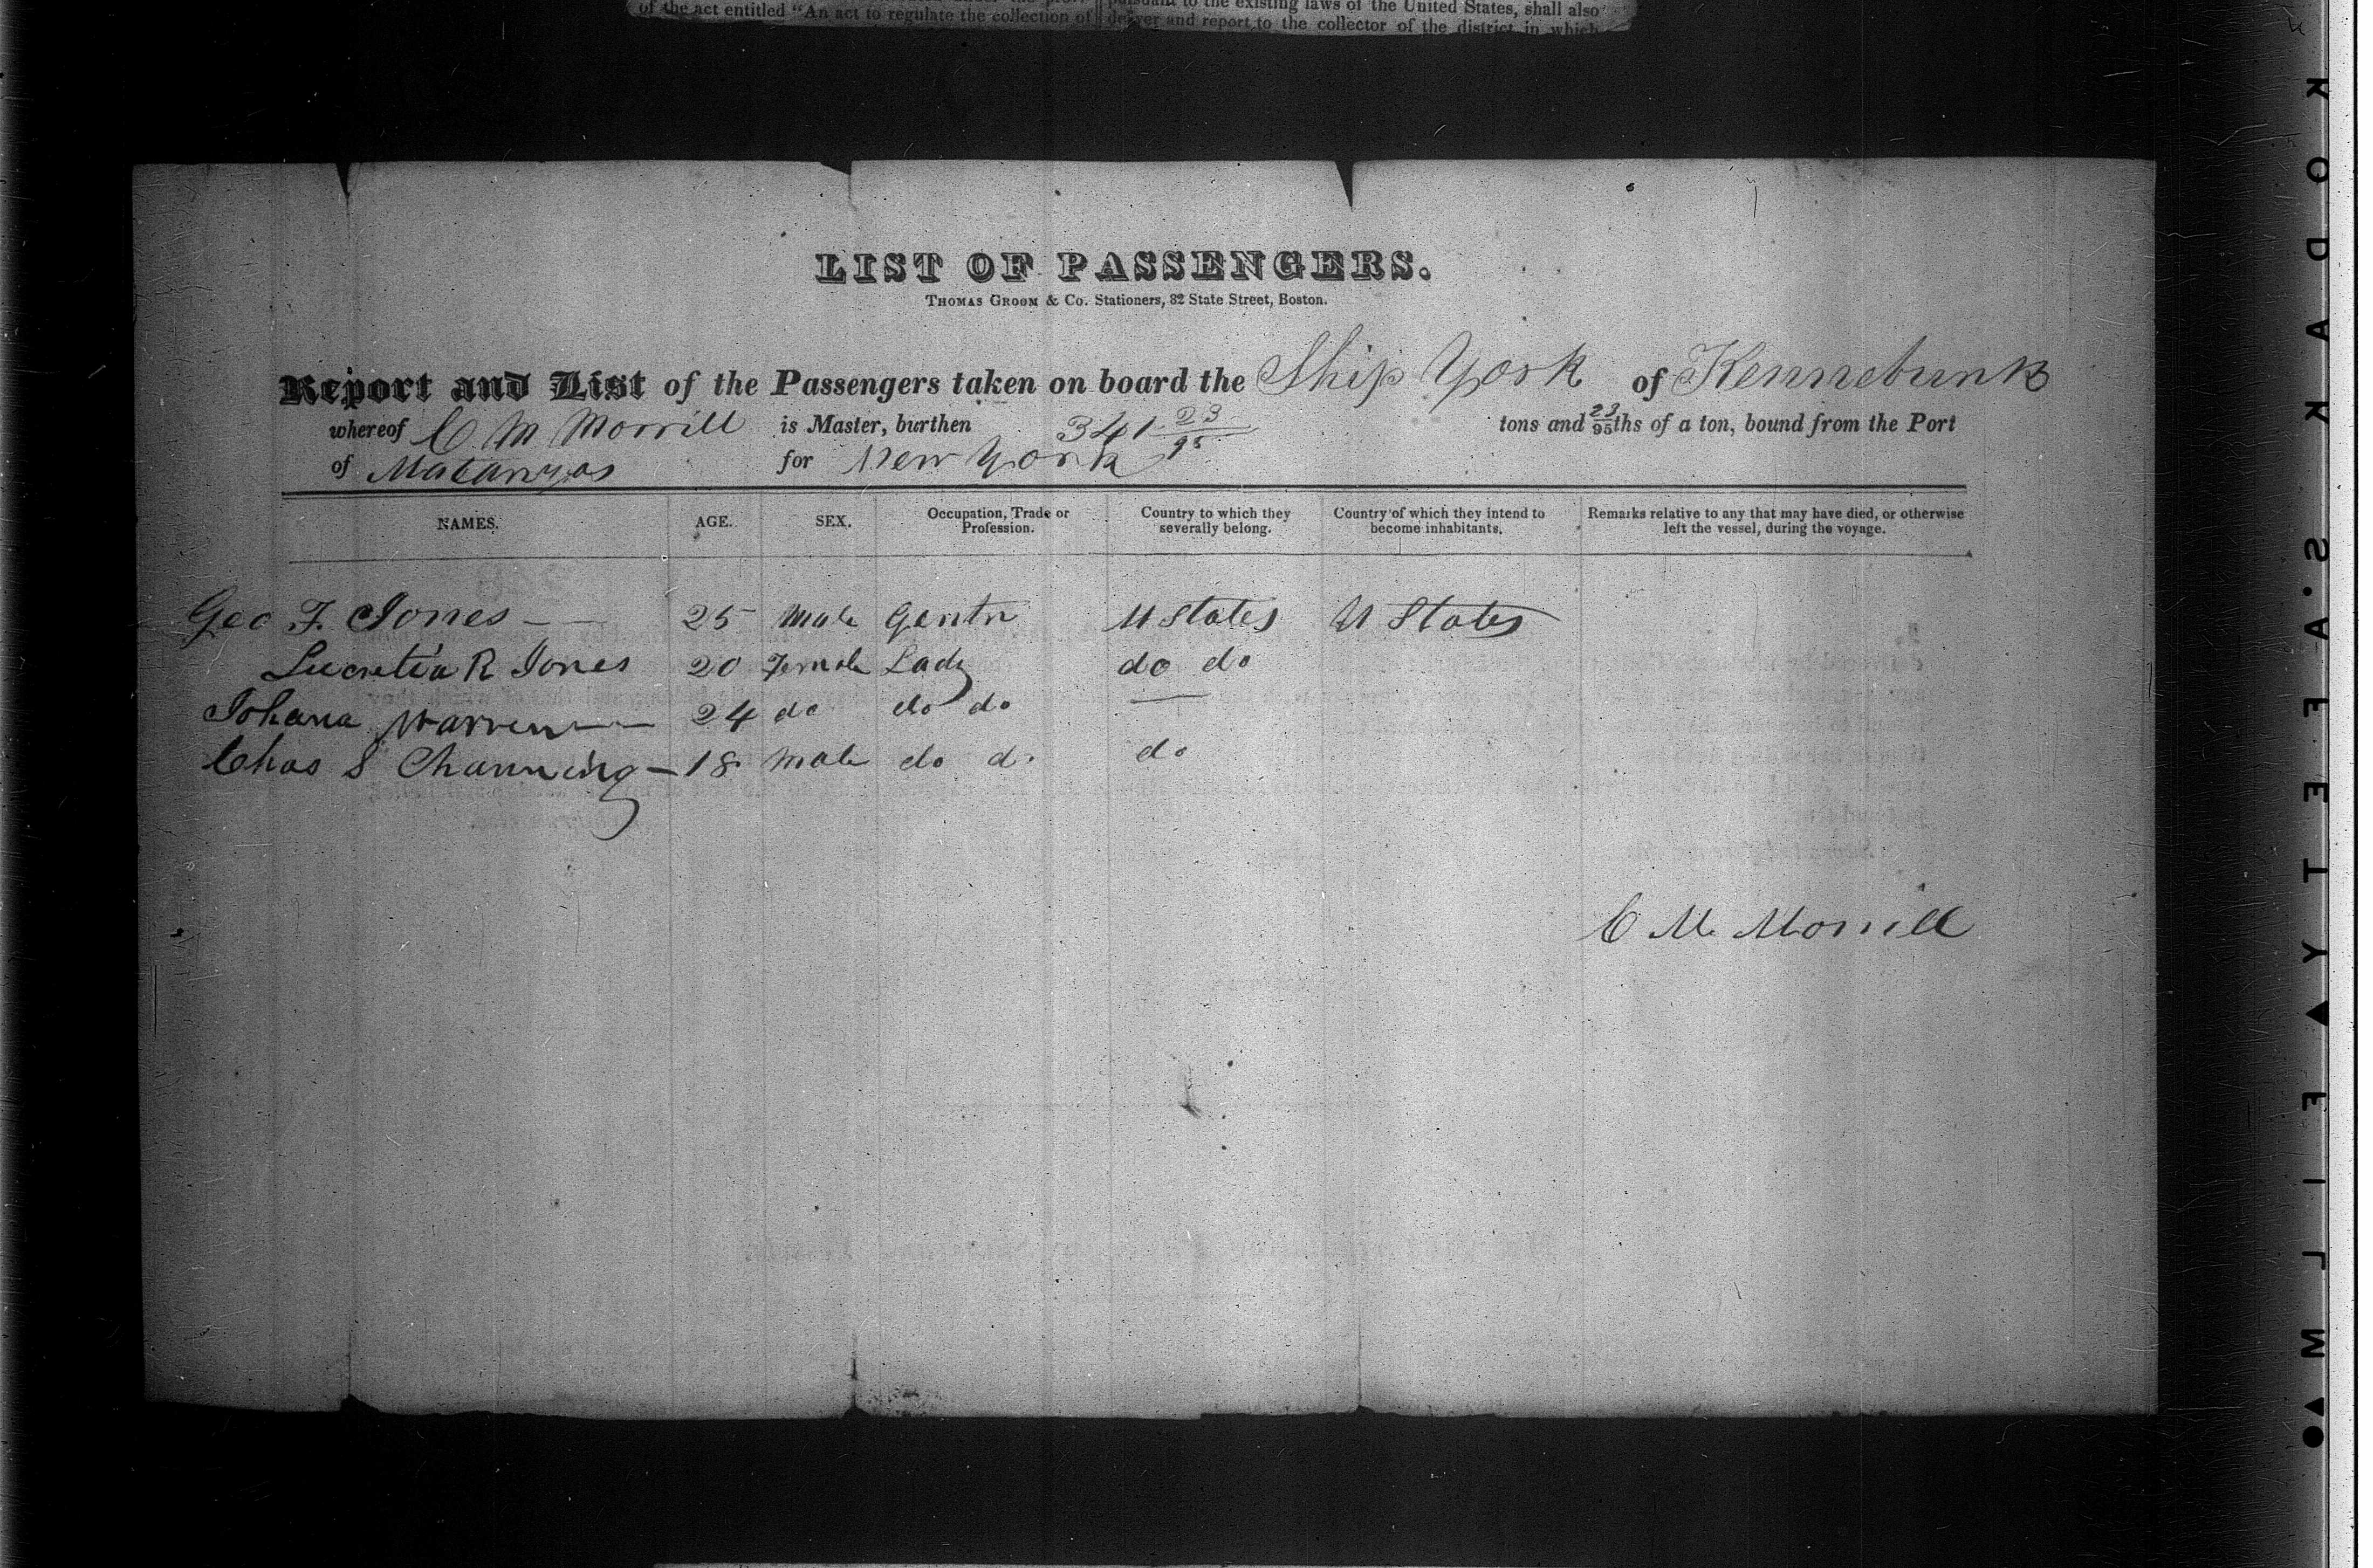 of the act entitled "An act to regulate the collection of
pursuant to the existing laws of the United States, shall also
deliver and report to the collector of the district in which
LIST OF PASSENGERS.
THOMAS GROOM & Co. Stationers, 82 State Street, Boston.
Report and List of the Passengers taken on board the Ship York of Kennebunk
whereof C M Morrill is Master, burthen 341 23/95 tons and 23/95ths of a ton, bound from the Port
of Matanzas for New York
NAMES. AGE. SEX. Occupation, Trade or Profession. Country to which they severally belong. Country of which they intend to become inhabitants. Remarks relative to any that may have died, or otherwise left the vessel, during the voyage.
Geo F. Jones — 25 Male Gentn U States U States
Lucretia R Jones 20 Female Lady do do
Johana Warren — 24 do do do —
Chas S Channing — 18 Male do do do
C M Morrill
KODAK S.AFETY FILM